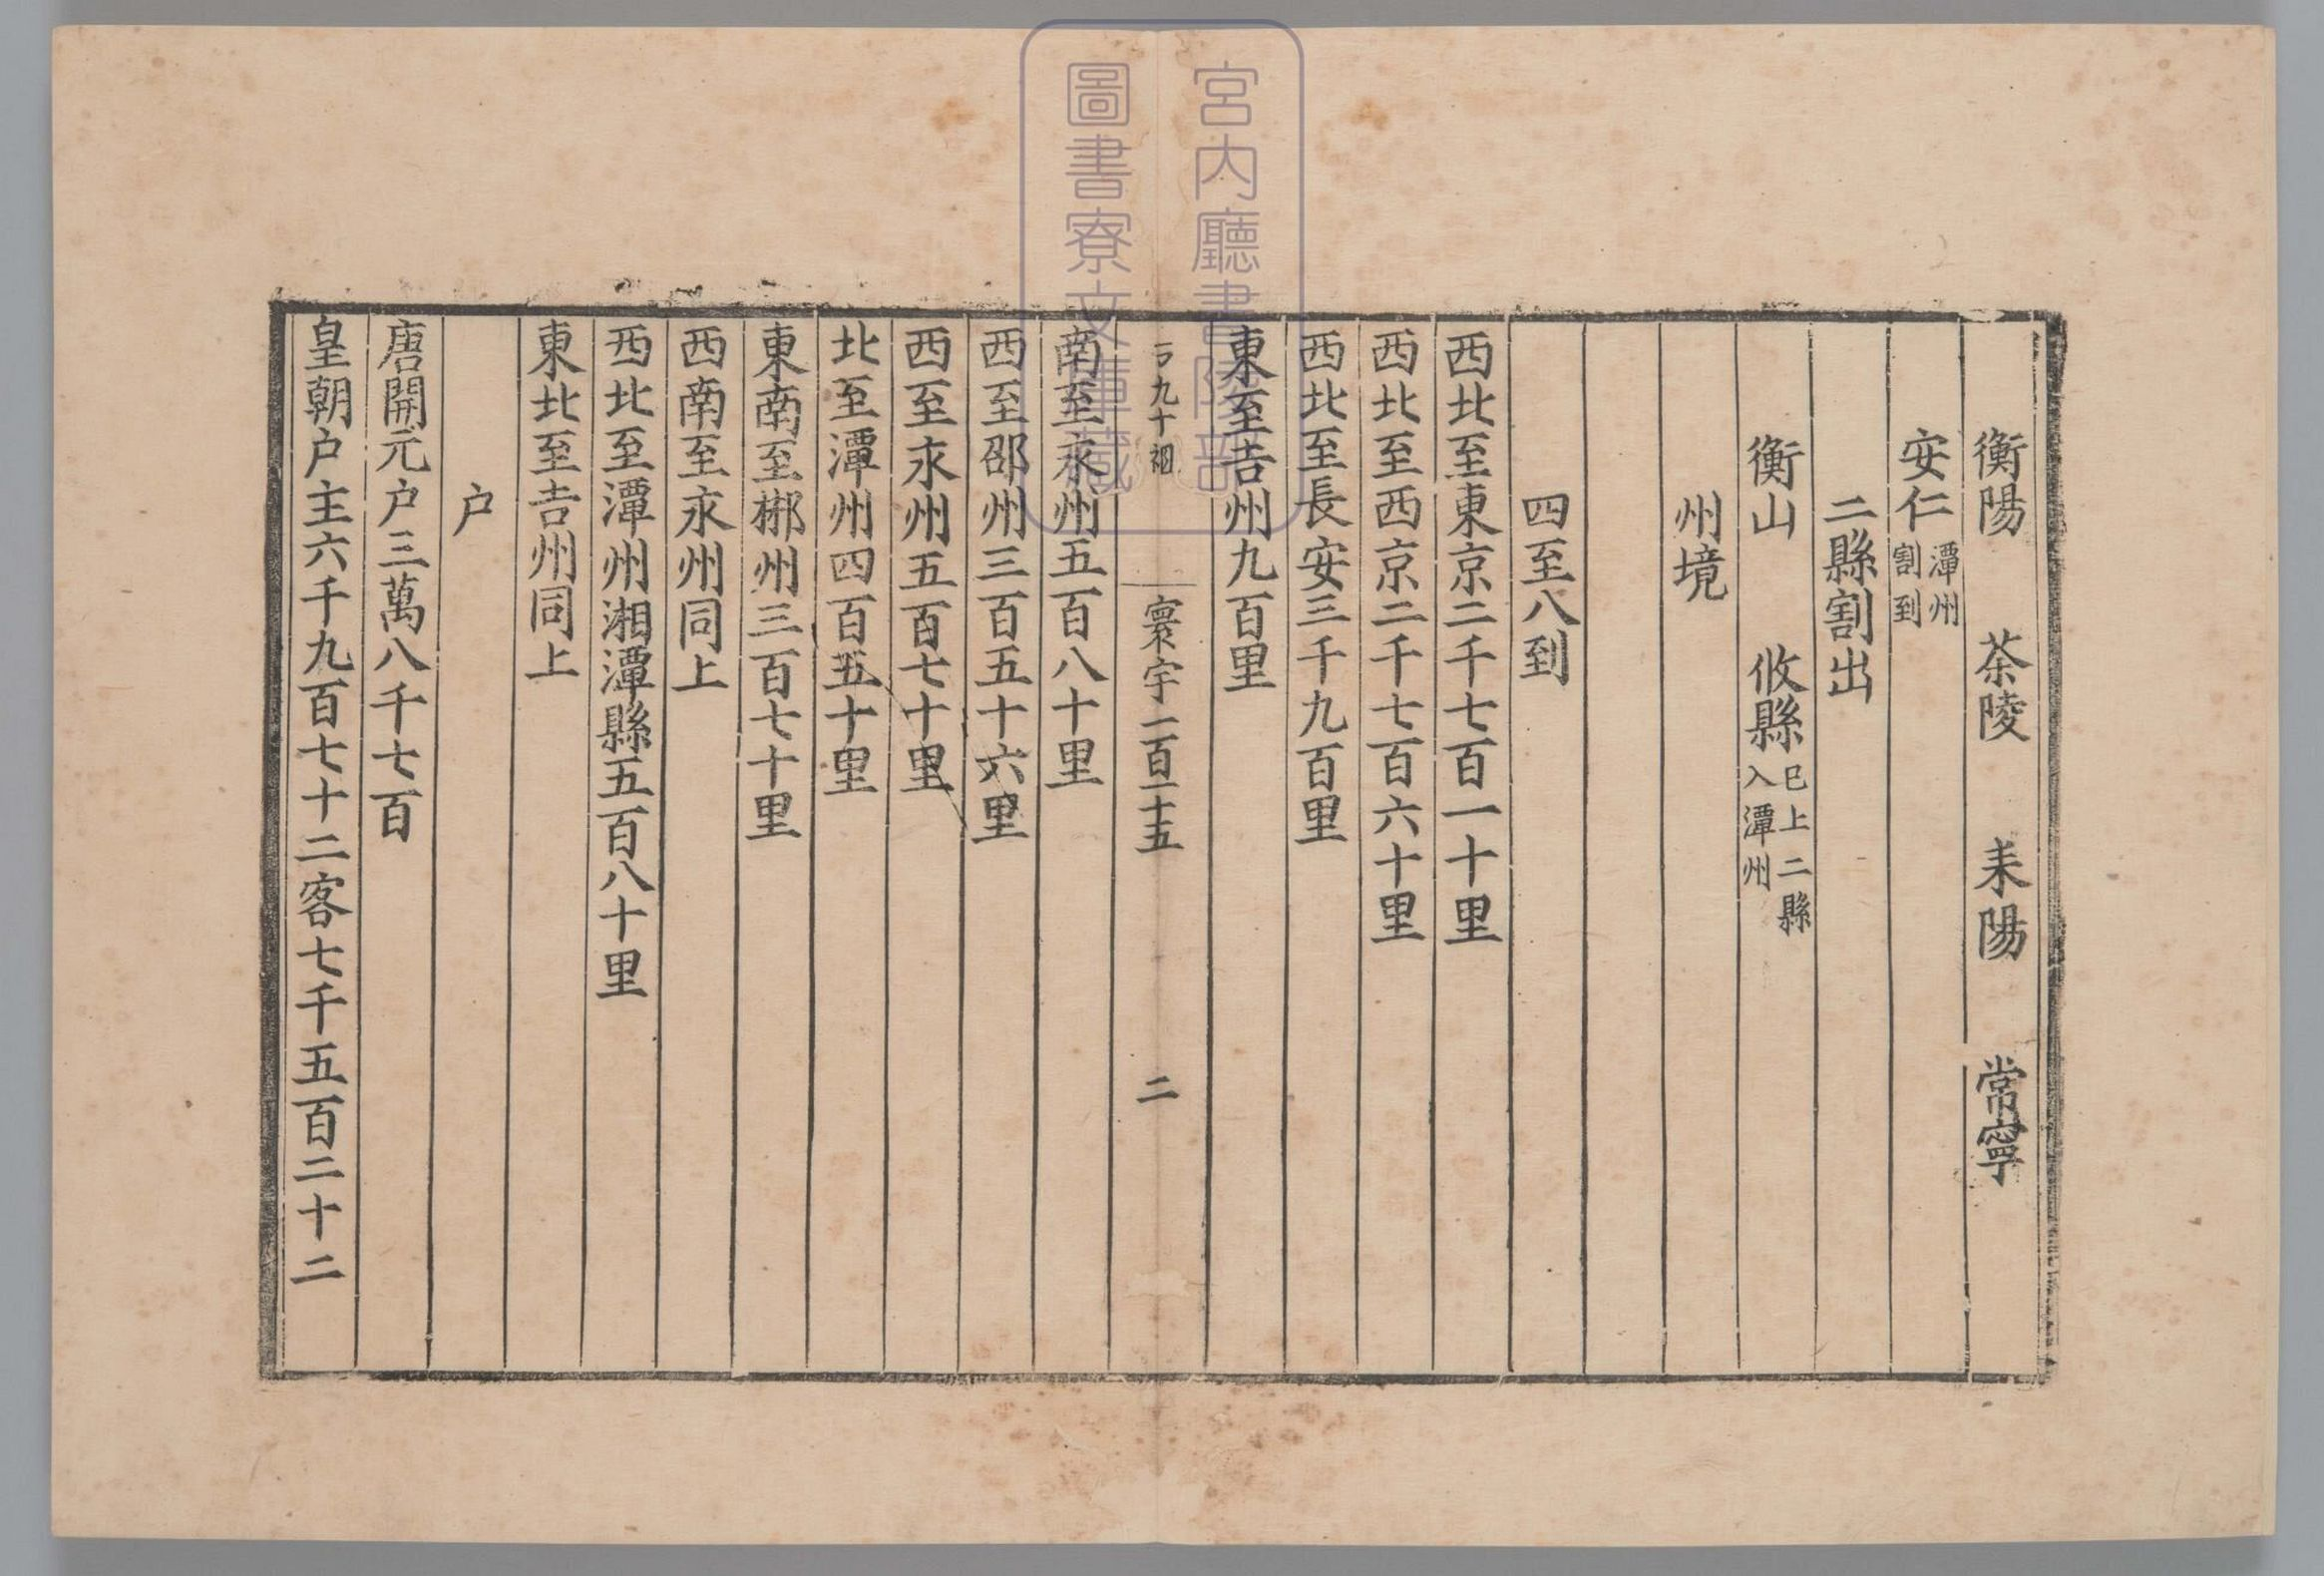 衡陽　茶陵　耒陽　常寧
安仁潭州割到
二縣割出
衡山　攸縣已上二縣入潭州
州境
四至八到
西北至東京二千七百一十里
西北至西京二千七百六十里
西北至長安三千九百里
東至吉州九百里
寰宇一百一十五　二
南至永州五百八十里
西至邵州三百五十六里
西至永州五百七十里
北至潭州四百五十里
東南至郴州三百七十里
西南至永州同上
西北至潭州湘潭縣五百八十里
東北至吉州同上
户
唐開元户三萬八千七百
皇朝户主六千九百七十二客七千五百二十二
宮内廳書陵部
圖書寮文庫藏